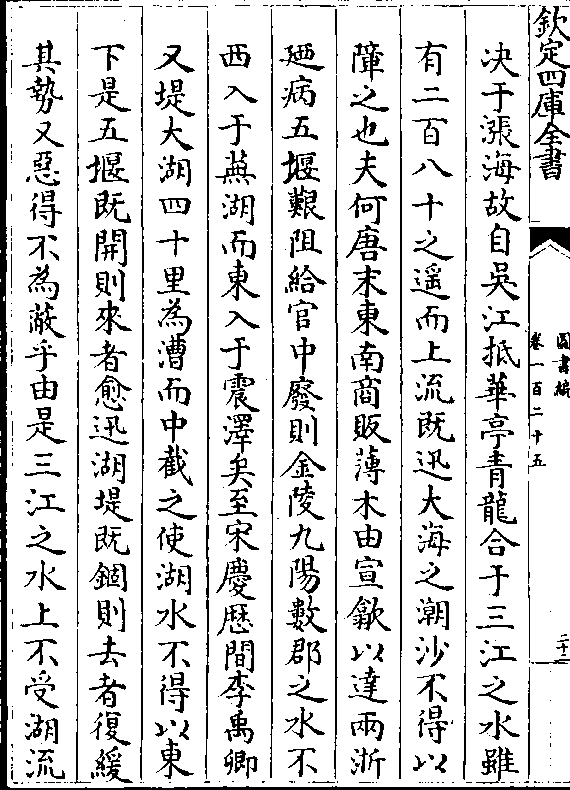 欽定四庫全書
圖書編
卷一百二十五
二十二
决于漲海故自吳江抵華亭青龍合于三江之水雖
有二百八十之遥而上流既迅大海之潮沙不得以
障之也夫何唐末東南商販薄木由宣歙以達兩浙
廼病五堰艱阻給官中廢則金陵九陽數郡之水不
西入于蕪湖而東入于震澤矣至宋慶厯間李禹卿
又堤大湖四十里為漕而中截之使湖水不得以東
下是五堰既開則來者愈迅湖堤既錮則去者復緩
其勢又惡得不為蔽乎由是三江之水上不受湖流